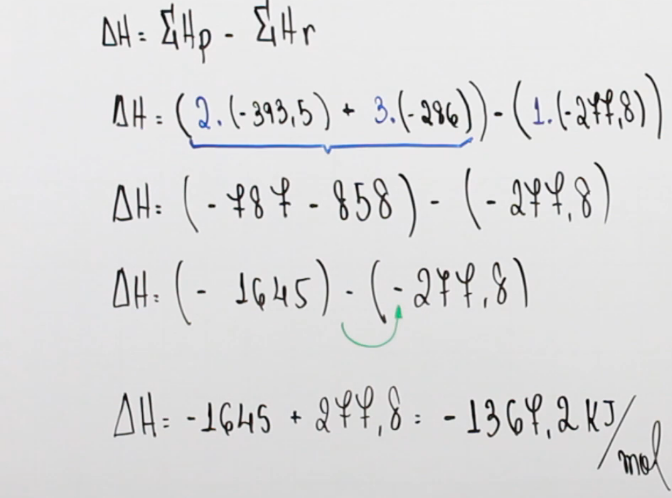 ΔH = ΣHp - ΣHr
ΔH = (2.(-393,5) + 3.(-286)) - (1.(-277,8))
ΔH = (-787 - 858) - (-277,8)
ΔH = (- 1645) - (-277,8)
ΔH = -1645 + 277,8 = -1367,2 KJ/mol